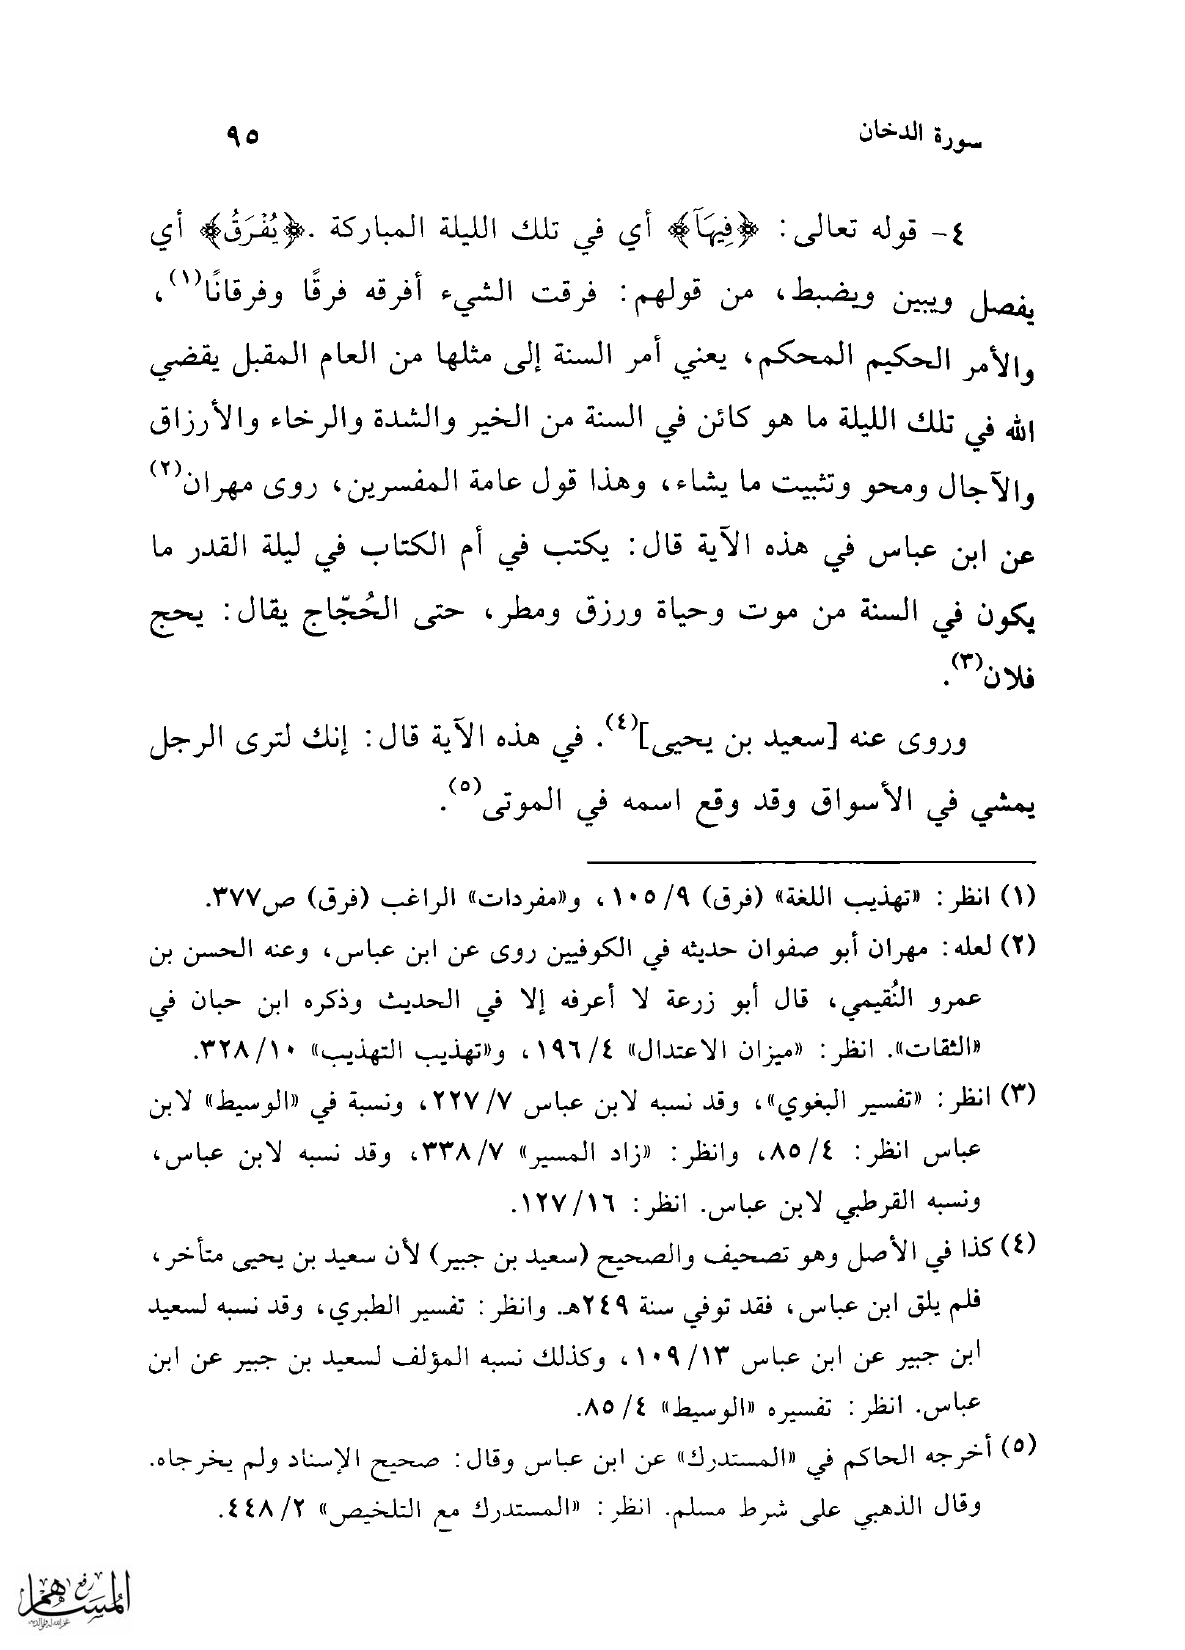 سورة الدخان
٩٥
٤- قوله تعالى: ﴿فِيهَآ﴾ أي في تلك الليلة المباركة .﴿يُفْرَقُ﴾ أي
يفصل ويبين ويضبط، من قولهم: فرقت الشيء أفرقه فرقًا وفرقانًا(١)،
والأمر الحكيم المحكم، يعني أمر السنة إلى مثلها من العام المقبل يقضي
الله في تلك الليلة ما هو كائن في السنة من الخير والشدة والرخاء والأرزاق
والآجال ومحو وتثبيت ما يشاء، وهذا قول عامة المفسرين، روى مهران(٢)
عن ابن عباس في هذه الآية قال: يكتب في أم الكتاب في ليلة القدر ما
يكون في السنة من موت وحياة ورزق ومطر، حتى الحُجّاج يقال: يحج
فلان(٣).
وروى عنه [سعيد بن يحيى](٤). في هذه الآية قال: إنك لترى الرجل
يمشي في الأسواق وقد وقع اسمه في الموتى(٥).
(١) انظر: «تهذيب اللغة» (فرق) ٩/ ١٠٥، و«مفردات» الراغب (فرق) ص٣٧٧.
(٢) لعله: مهران أبو صفوان حديثه في الكوفيين روى عن ابن عباس، وعنه الحسن بن
عمرو النُقيمي، قال أبو زرعة لا أعرفه إلا في الحديث وذكره ابن حبان في
«الثقات». انظر: «ميزان الاعتدال» ٤/ ١٩٦، و«تهذيب التهذيب» ١٠/ ٣٢٨.
(٣) انظر: «تفسير البغوي»، وقد نسبه لابن عباس ٧/ ٢٢٧، ونسبة في «الوسيط» لابن
عباس انظر: ٤/ ٨٥، وانظر: «زاد المسير» ٧/ ٣٣٨، وقد نسبه لابن عباس،
ونسبه القرطبي لابن عباس. انظر: ١٦/ ١٢٧.
(٤) كذا في الأصل وهو تصحيف والصحيح (سعيد بن جبير) لأن سعيد بن يحيى متأخر،
فلم يلق ابن عباس، فقد توفي سنة ٢٤٩هـ. وانظر: تفسير الطبري، وقد نسبه لسعيد
ابن جبير عن ابن عباس ١٣/ ١٠٩، وكذلك نسبه المؤلف لسعيد بن جبير عن ابن
عباس. انظر: تفسيره «الوسيط» ٤/ ٨٥.
(٥) أخرجه الحاكم في «المستدرك» عن ابن عباس وقال: صحيح الإسناد ولم يخرجاه.
وقال الذهبي على شرط مسلم. انظر: «المستدرك مع التلخيص» ٢/ ٤٤٨.
رفع
المساهم